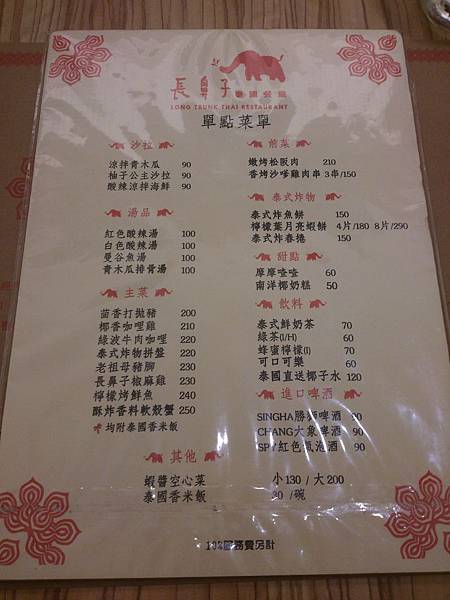 長鼻子泰國餐廳
LONG TRUNK THAI RESTAURANT
單點菜單
沙拉
涼拌青木瓜 90
柚子公主沙拉 90
酸辣涼拌海鮮 90
湯品
紅色酸辣湯 100
白色酸辣湯 100
曼谷魚湯 100
青木瓜排骨湯 100
主菜
茴香打拋豬 200
椰香咖哩雞 210
綠波牛肉咖哩 220
泰式炸物拼盤 220
老祖母豬腳 230
長鼻子椒麻雞 230
檸檬烤鮮魚 240
酥炸香料軟殼蟹 250
均附泰國香米飯
前菜
嫩烤松阪肉 210
香烤沙嗲雞肉串 3串/150
泰式炸物
泰式炸魚餅 150
檸檬葉月亮蝦餅 4片/180 8片/290
泰式炸春捲 150
甜點
摩摩喳喳 60
南洋椰奶糕 50
飲料
泰式鮮奶茶 70
綠茶(I/H) 60
蜂蜜檸檬(I) 70
可口可樂 60
泰國直送椰子水 120
進口啤酒
SINGHA勝獅啤酒 90
CHANG大象啤酒 90
SPY紅色氣泡酒 90
其他
蝦醬空心菜 小130/大200
泰國香米飯 30/碗
10%服務費另計